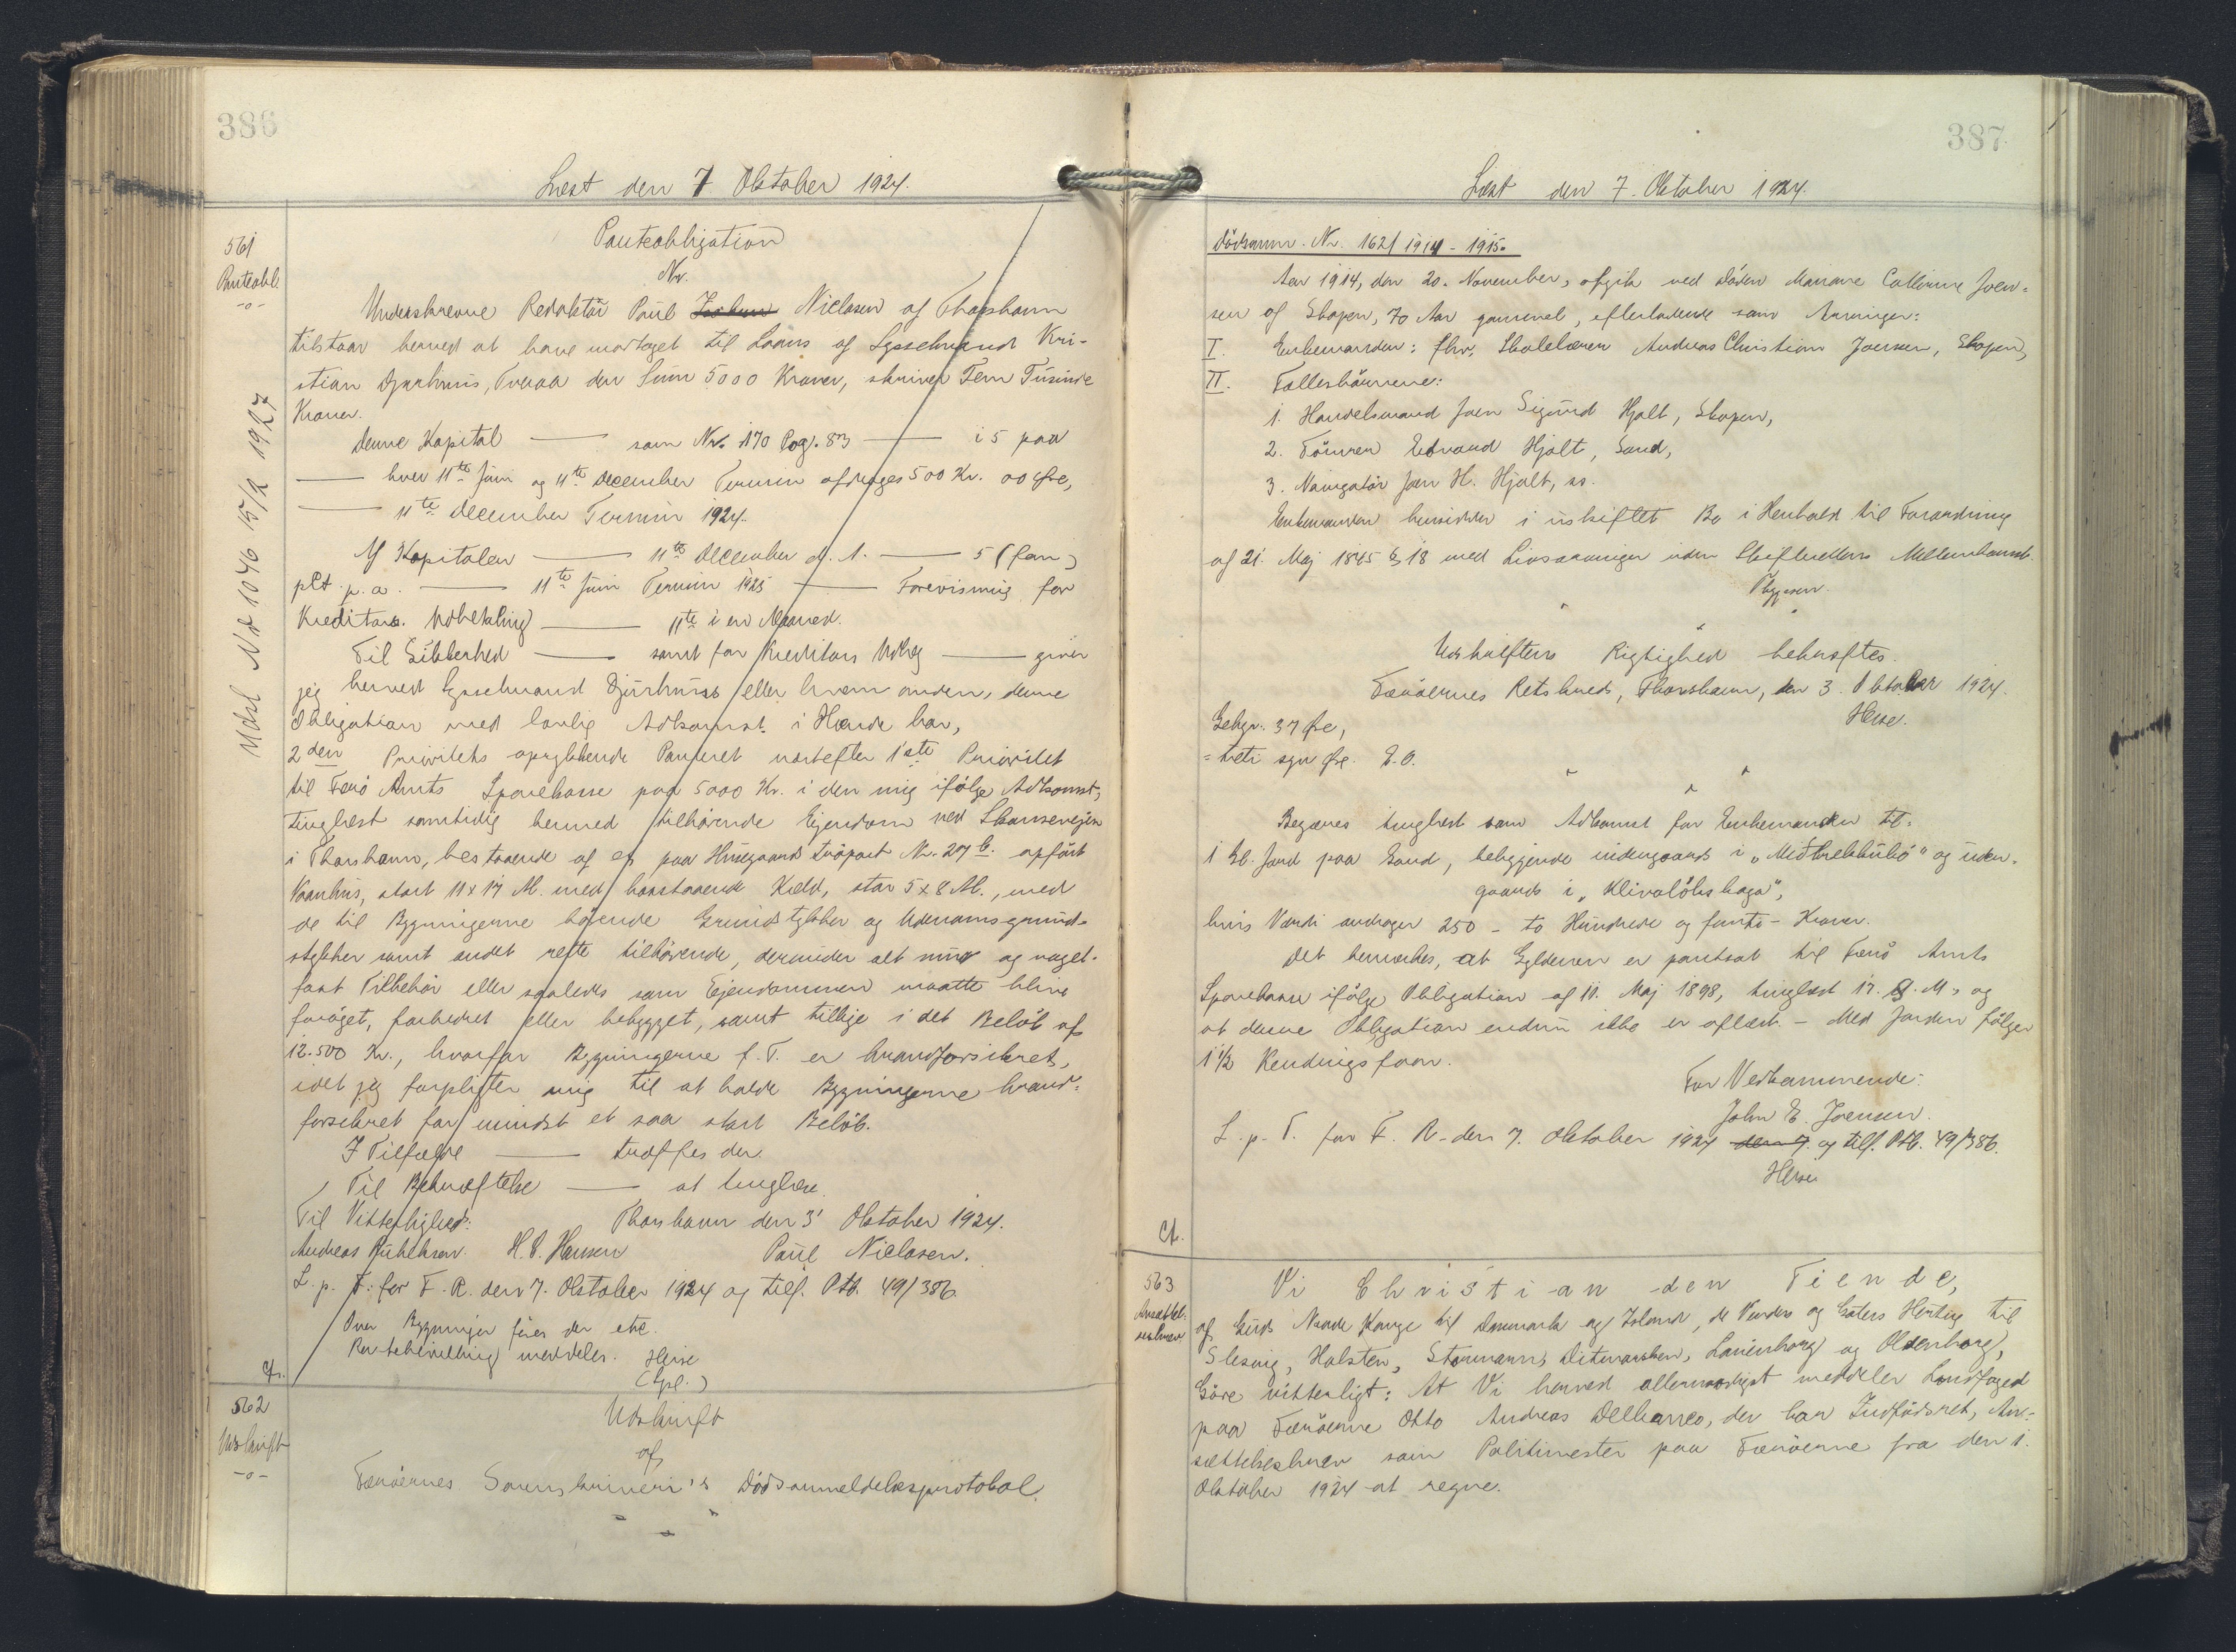 386
Læst den 7 Oktober 1924.
561
Panteobl.
-o-
Udsl No 1046 15/2 1927
Panteobligation
Nr.
Underskrevne Redaktör Poul Nielasen af Thorshavn
tilstaar herved at have modtaget til Laans af Sysselmand Kri-
stian Djurhuus, Tvraa den Sum 5000 Kroner, skriver Fem Tusinde
Kroner.
Denne Kapital — som Nr. 170 Pag. 83 — i 5 paa
— hver 11te Juni og 11te December Termin afdrages 500 Kr. 00 Öre,
— 11te December Termin 1924.
Af Kapitalen — 11te December d. A. — 5 (fem)
pCt. p. a. — 11te Juni Termin 1925 — Forevisning for
Kreditors Udbetaling — 11te i en Maaned.
Til Sikkerhed — samt for Kreditors Udlæg — giver
jeg herved Sysselmand Djurhuus eller hvem anden, denne
Obligation med lovlig Adkomst i Hænde har,
2den Prioritets oprykkende Panteret næstefter 1ste Prioritet
til Færö Amts Sparekasse paa 5000 Kr. i den mig ifölge Adkomst,
tinglæst samtidig hermed tilhörende Ejendom ved Skansevejen
i Thorshavn, bestaaende af et paa Husegaards Tröpart Nr. 27 b. opfört
Vaanhus, stort 11 x 17 Al. med hosstaaende Kæld, stor 5 x 8 Al., med
de til Bygningerne hörende Grundstykker og Udenomsgrund-
stykker samt andet rette tilhörende, derunder alt mur og nagel-
fast Tilbehör eller saaledes som Ejendommen maatte blive
foröget, forbedret eller bebygget, samt tillige i det Belöb af
12.500 Kr., hvorfor Bygningerne f. T. er brandforsikret,
idet jeg forpligter mig til at holde Bygningerne brand-
forsikret for mindst et saa stort Belöb.
I Tilfælde — træffes der.
Til Bekræftelse — at tinglæse.
Til Vitterlighed: Thorshavn den 3' Oktober 1924.
Andreas H. P. Hansen Poul Nielasen.
L. p. T. for F. R. den 7. Oktober 1924 og tilf. Ptb. 49/386
Over Bygninger föres der etc.
meddeles. Heise
(Gpl.)
Cf.
562
Udskrift
-o-
Udskrift
af
Færöernes Sorenskriveri's Dödsanmeldelsesprotokol.
387
Læst den 7. Oktober 1924.
Dödsanm. Nr. 162/1914-1915.
Aar 1914, den 20. November, afgik ved Döden Mariane Cathrine Joen-
sen af Skopen, 70 Aar gammel, efterladende som Arvinger:
I. Enkemanden: fhv. Skolelærer Andreas Christian Joensen, Skopen,
II. Fællesbörnene:
1. Handelsmand Joen Sigurd Hjalt, Skopen,
2. Tömrer Edvard Hjalt, Sand,
3. Navigatör Joen H. Hjalt, ss.
Enkemanden hensidder i uskiftet Bo i Henhold til Forordning
af 21. Maj 1845 § 18 med Livsarvinger uden Skifterettens Mellemkomst.
Udskriftens Rigtighed bekræftes.
Færöernes Retskreds, Thorshavn, den 3. Oktober 1924.
Heise.
Gebyr: 37 Öre,
= treti syv Öre. E. O.
Begæres tinglæst som Adkomst for Enkemanden til:
1 Gl. Jord paa Sand, beliggende indengaards i „ og uden-
gaards i „
hvis Værdi andrager 250 - to Hundrede og femti - Kroner.
Det bemærkes, at Gyldenen er pantsat til Færö Amts
Sparekasse ifölge Obligation af 11. Maj 1898, tinglæst 17. s. M., og
at denne Obligation endnu ikke er aflæst. - Med Jorden fölger
1 1/2 Kendingsfaar.
For Vedkommende:
John E. Joensen.
L. p. T. for F. R. den 7. Oktober 1924 den 7. og tilf. Ptb. 49/386.
Heise
Cf.
563
Ansættel-
sesbrev
Vi Christian den Tiende,
af Guds Naade Konge til Danmark og Island, de Venders og Goters Hertug til
Slesvig, Holsten, Stormarn, Ditmarsken, Lauenborg og Oldenborg,
Göre vitterligt: At Vi herved allernaadigst meddeler Landfoged
paa Færöerne Otto Andreas Delbanco, der har Indfödsret, An-
sættelsesbrev som Politimester paa Færöerne fra den 1.
Oktober 1924 at regne.